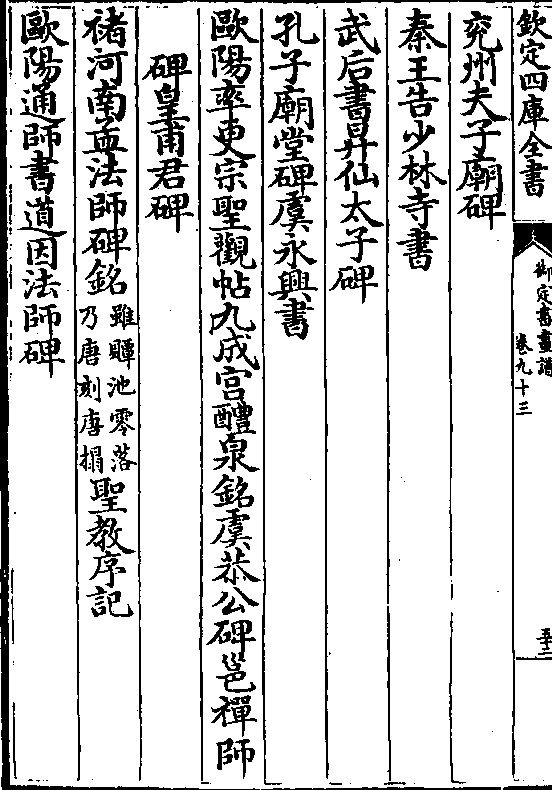 欽定四庫全書
御定書畫譜
卷九十三
五二
兖州夫子廟碑
秦王告少林寺書
武后書昇仙太子碑
孔子廟堂碑虞永興書
歐陽率更宗聖觀帖九成宫醴泉銘虞恭公碑邕禪師
碑皇甫君碑
禇河南孟法師碑銘雖䵣池零落乃唐刻唐搨聖教序記
歐陽通師書道因法師碑